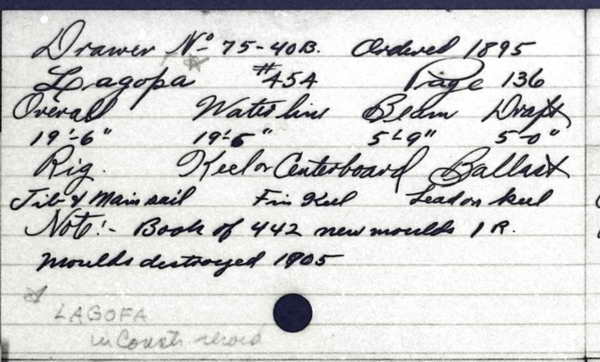 Drawer No 75-40B. Ordered 1895
Lagopa #454 Page 136
Overall Waterline Beam Draft
19'-6" 19'-6" 5'-9" 5'-0"
Rig. Keel or Centerboard Ballast
Jib & Mainsail Fin Keel Lead on keel
Note:- Book of 442 new moulds 1R.
Moulds destroyed 1905
LAGOFA
in Constr record